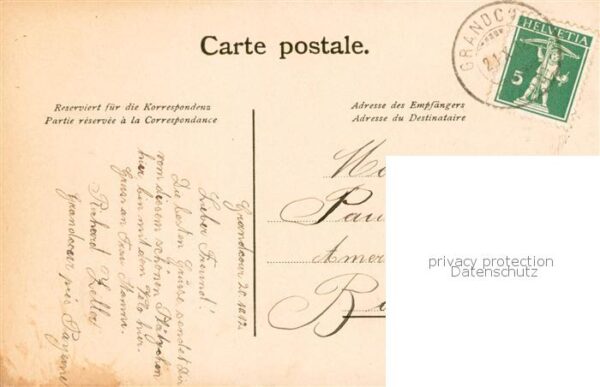 Carte postale.
GRANDCO
HELVETIA
5
Reserviert für die Korrespondenz
Partie réservée à la Correspondance
Adresse des Empfängers
Adresse du Destinataire
Grandcour 20.10.12.
Lieber Freund!
Die besten Grüsse sendet dir
von diesem schönen Plätzchen
hier bin mit dem Velo hier.
Gruss an Frau
Richard Zeller
Grandcour près Payerne
Pau
Amer
privacy protection
Datenschutz